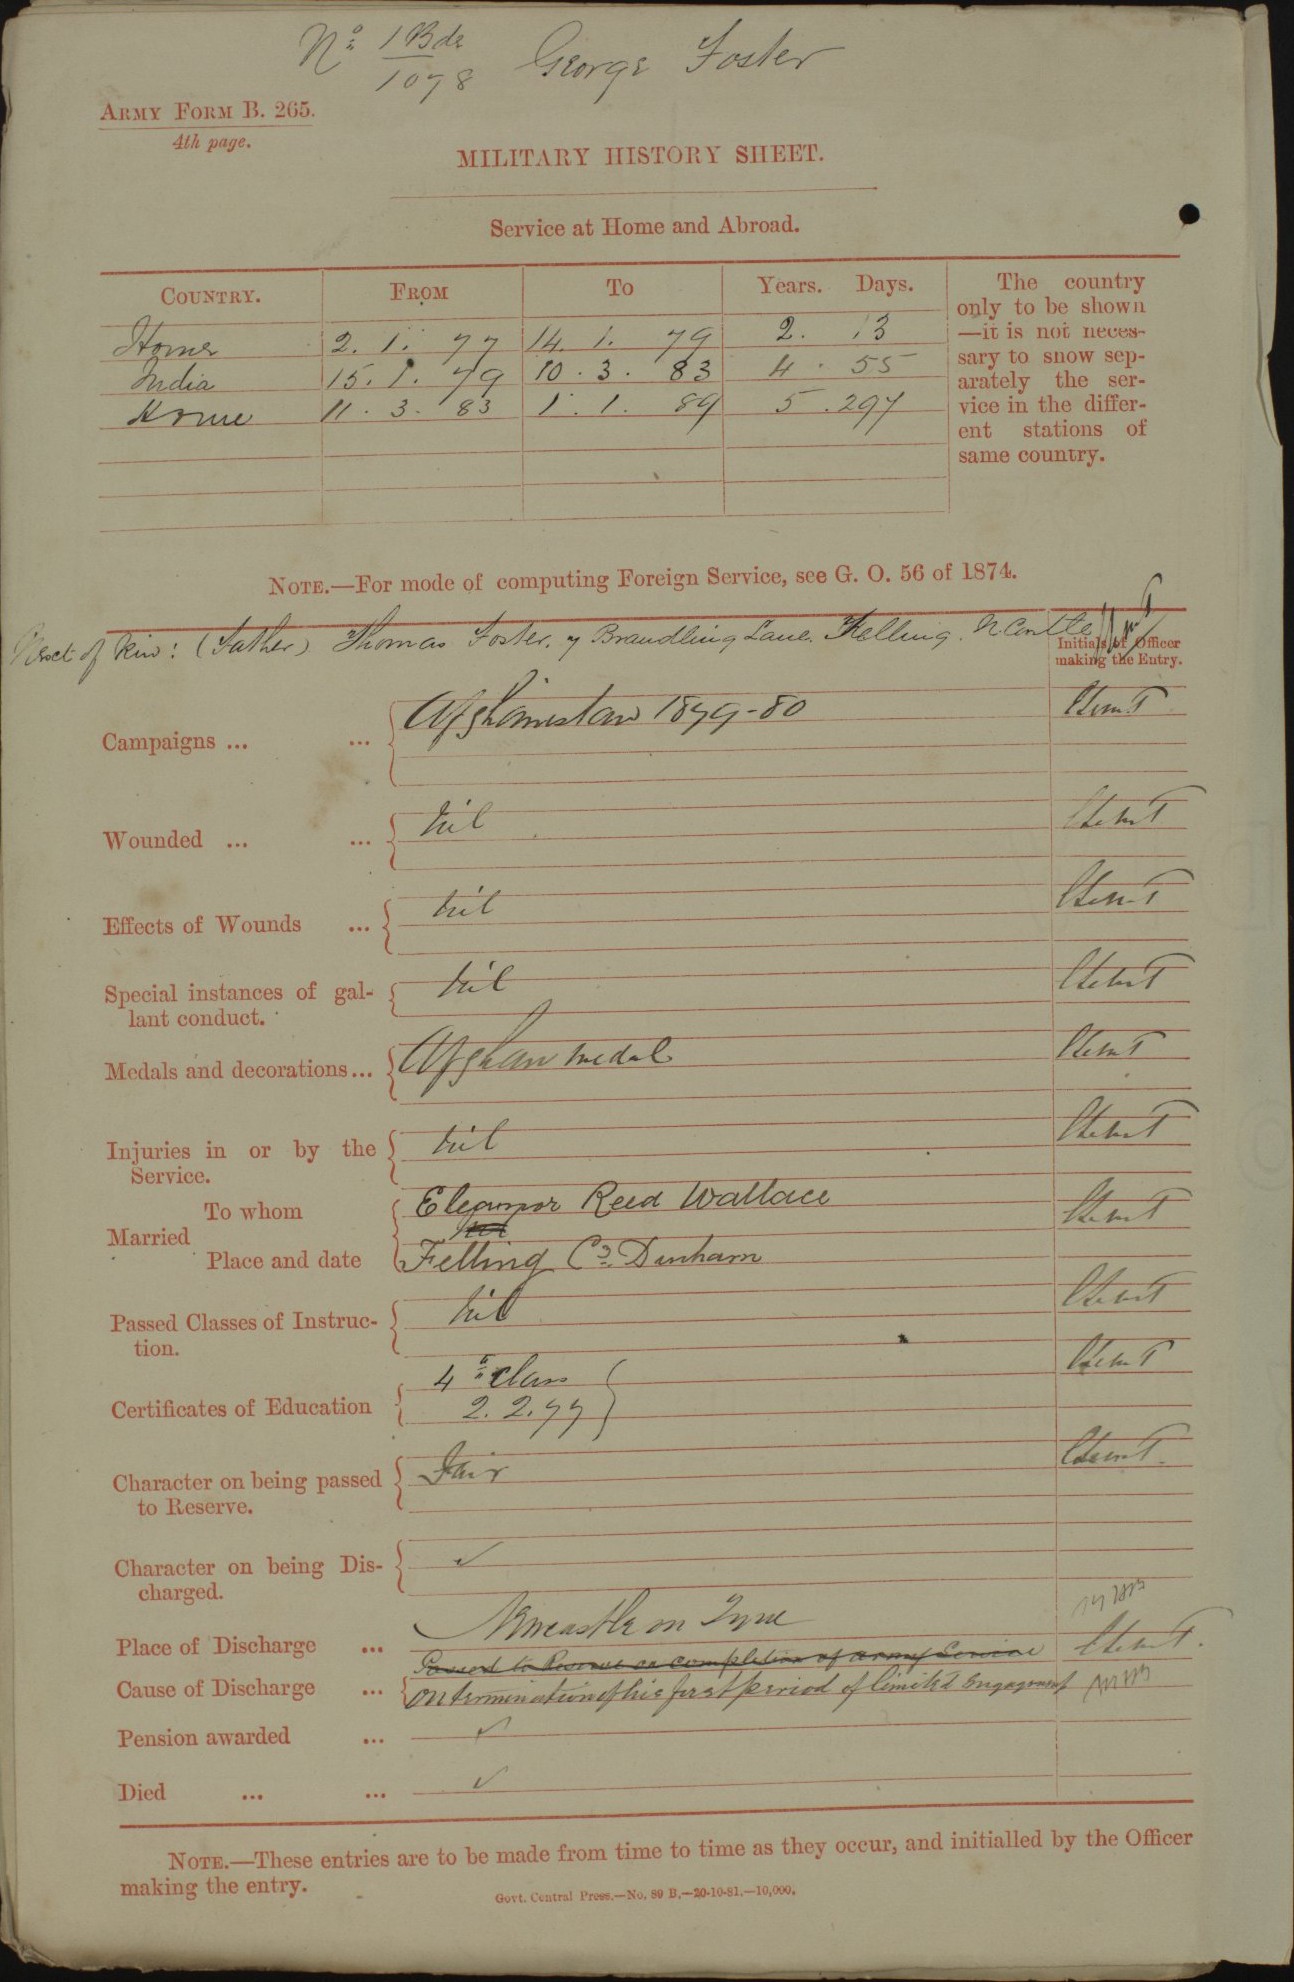 No 1 Bde
1078 George Foster
ARMY FORM B. 265.
4th page.
MILITARY HISTORY SHEET.
Service at Home and Abroad.
COUNTRY. FROM TO Years. Days.
Home 2. 1. 77 14. 1. 79 2. 13
India 15. 1. 79 10. 3. 83 4. 55
Home 11. 3. 83 1. 1. 89 5. 297
The country
only to be shown
—it is not neces-
sary to snow sep-
arately the ser-
vice in the differ-
ent stations of
same country.
NOTE.—For mode of computing Foreign Service, see G. O. 56 of 1874.
Next of kin: (Father) Thomas Foster, 7 Brandling Lane. Felling.
Initials of Officer
making the Entry.
Campaigns ... ... Afghanistan 1879-80
Wounded ... ... Nil
Effects of Wounds ... Nil
Special instances of gal-
lant conduct. Nil
Medals and decorations... Afghan medal
Injuries in or by the
Service. Nil
Married
To whom Eleanor Reed Wallace
Place and date Felling Co. Durham
Passed Classes of Instruc-
tion. Nil
Certificates of Education 4th class
2. 2. 77
Character on being passed
to Reserve. Fair
Character on being Dis-
charged. ✓
Place of Discharge ... Newcastle on Tyne
Passed to Reserve on completion of army Service
Cause of Discharge ... On termination of his first period of limited Engagement
Pension awarded ... ✓
Died ... ... ✓
NOTE.—These entries are to be made from time to time as they occur, and initialled by the Officer
making the entry.
Govt. Central Press.—No. 89 B.—20-10-81.—10,000.